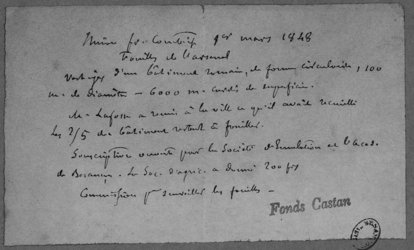 Union fr-comtoise 1er mars 1848
Fouilles de l'arsenal
Vestiges d'un bâtiment romain, de forme circulaire, 100
m. de diamètre — 6000 m. carrés de superficie.
M. Lafosse a remis à la ville ce qu'il avait recueilli
les 2/5 du bâtiment restent à fouiller.
Souscription ouverte par la Société d'Emulation et l'Acad.
de Besançon. La Soc. d'agric. a donné 200 frs
Commission pr surveiller les fouilles —
Fonds Castan